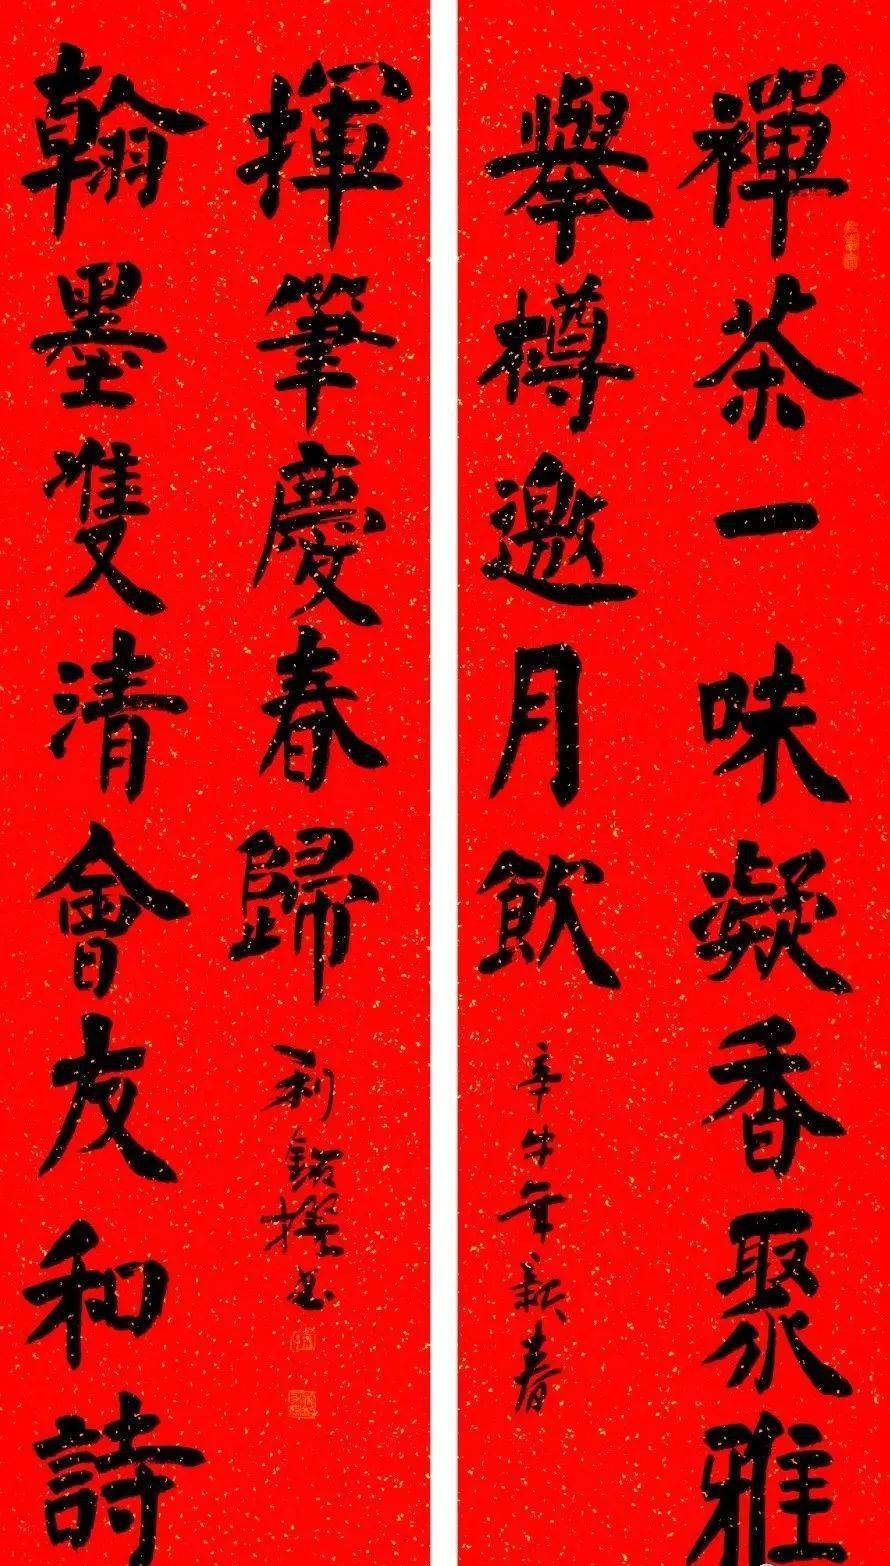 禪茶一味凝香聚雅
舉樽邀月飲
辛牛年新春
翰墨雙清會友和詩
揮筆慶春歸
利撰书